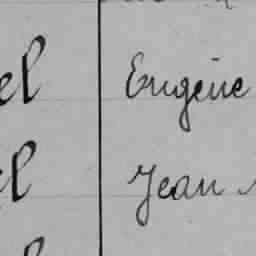 el Eugène
el Jean